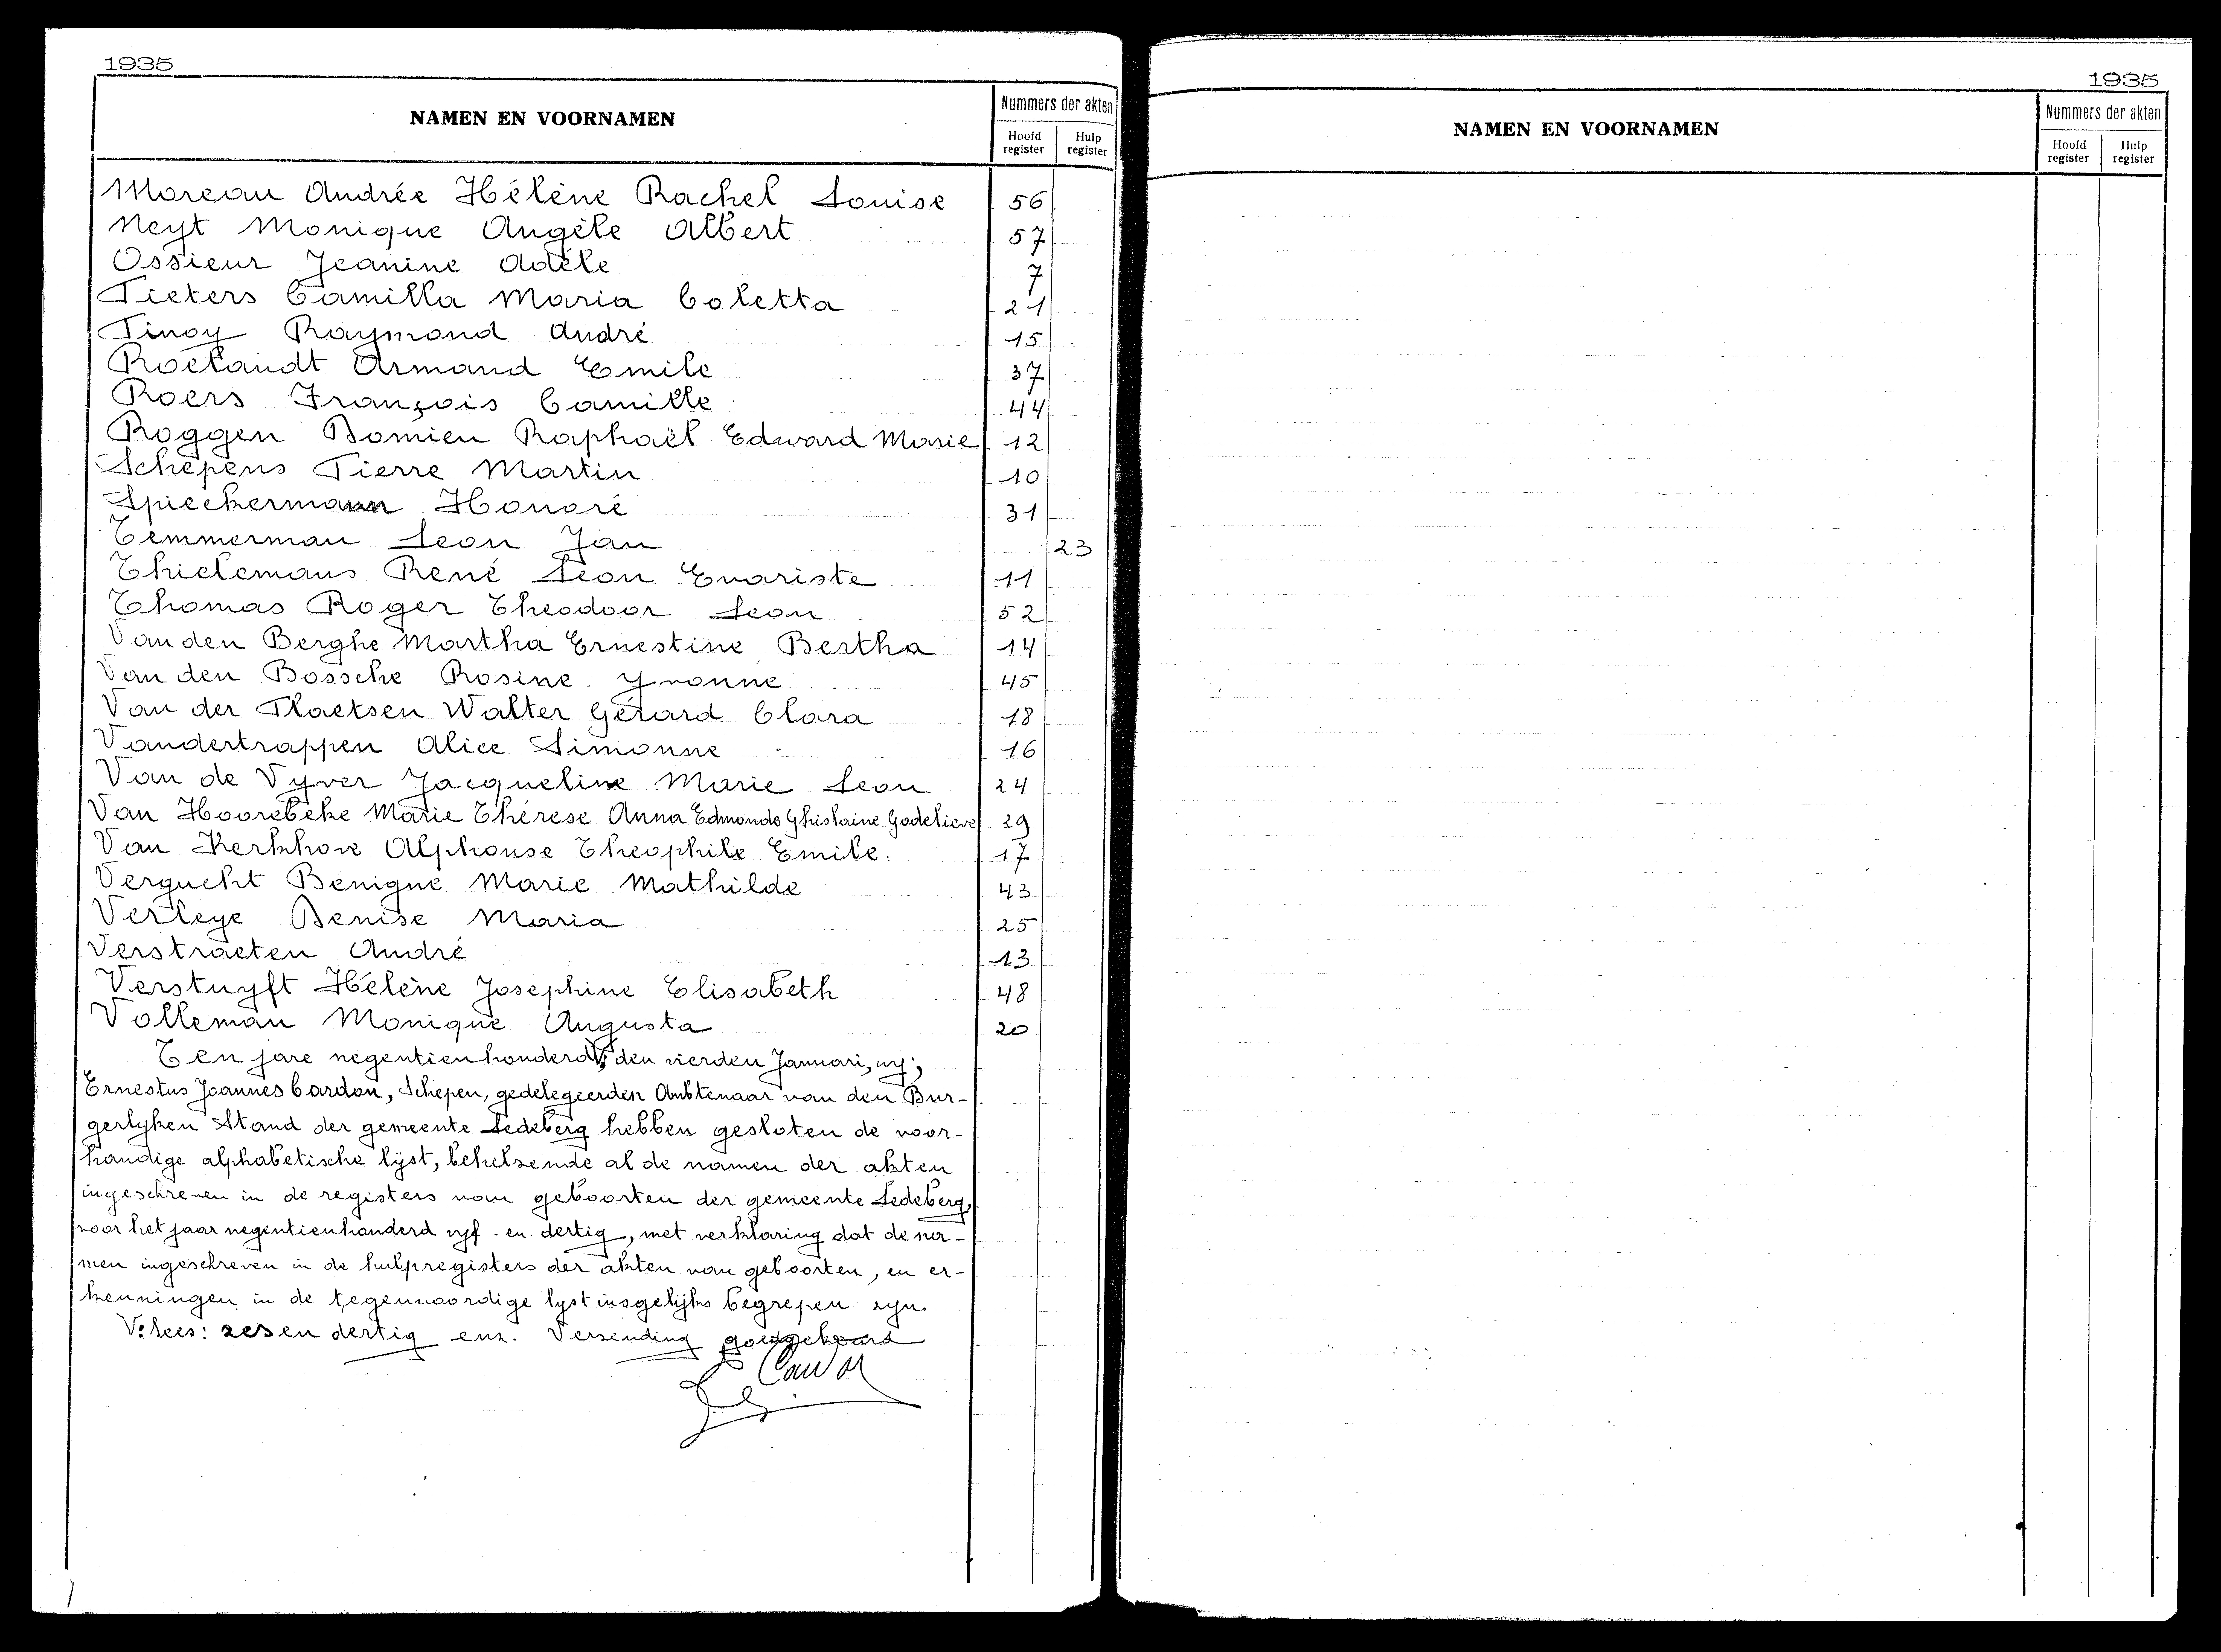 1935
NAMEN EN VOORNAMEN
Nummers der akten
Hoofd register
Hulp register
Moreau Andrée Hélène Rachel Louise 56
Neyt Monique Angèle Albert 57
Ossieur Jeanine Adèle 7
Pieters Camilla Maria Coletta 21
Pinoy Raymond André 15
Roelandt Armand Emile 37
Roers François Camille 44
Roggen Damien Raphaël Edward Marie 12
Schepens Pierre Martin 10
Spieckermann Honoré 31
Temmerman Leon Jan 23
Thielemans René Léon Evariste 11
Thomas Roger Theodoor Leon 52
Van den Berghe Martha Ernestine Bertha 14
Van den Bossche Rosine Yvonne 45
Van der Plaetsen Walter Gérard Clara 18
Vandertrappen Alice Simonne 16
Van de Vyver Jacqueline Marie Leon 24
Van Hoorebeke Marie Thérèse Anna Edmonde Ghislaine Godelieve 29
Van Kerkhove Alphonse Theophile Emile 17
Vergucht Benigne Marie Mathilde 43
Verleye Denise Maria 25
Verstraeten André 13
Verstuyft Hélène Josephine Elisabeth 48
Volleman Monique Augusta 20
Ten jare negentienhonderd V, den vierden Januari, wij;
Ernestus Joannes Cardon, Schepen, gedelegeerden Ambtenaar van den Bur-
gerlyken Stand der gemeente Ledeberg hebben gesloten de voor-
handige alphabetische lijst, behelzende al de namen der akten
ingeschreven in de registers van geboorten der gemeente Ledeberg,
voor het jaar negentienhonderd vyf en dertig, met verklaring dat de na-
men ingeschreven in de hulpregisters der akten van geboorten, en er-
kenningen in de tegenwoordige lyst insgelijks begrepen zyn.
V: Lees: zes en dertig enz. Verzinding goedgekeurd
1935
NAMEN EN VOORNAMEN
Nummers der akten
Hoofd register
Hulp register